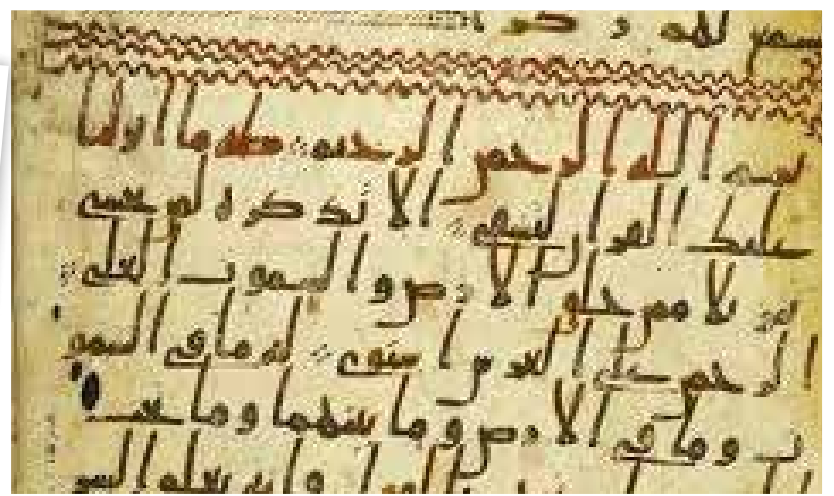 تسمع لهم ركزا
بسم الله الرحمن الرحيم طه ما انزلنا
عليك القران لتشقى الا تذكرة لمن يخشى
تنزيلا ممن خلق الارض والسموت العلى
الرحمن على العرش استوى له ما في السمو
ت وما في الارض وما بينهما وما تحت
القول فانه يعلم السر